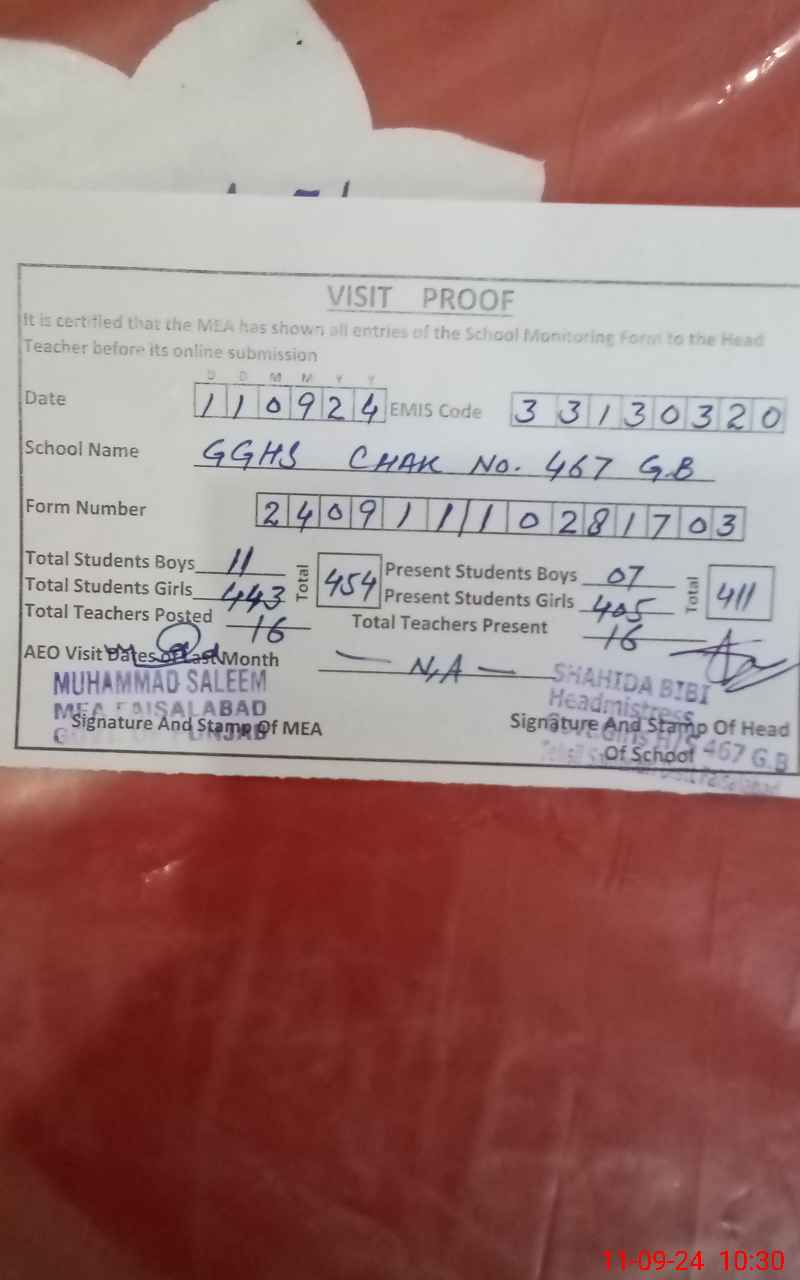 VISIT PROOF
It is certified that the MEA has shown all entries of the School Monitoring Form to the Head
Teacher before its online submission
D D M M Y Y
Date 110924 EMIS Code 33130320
School Name GGHS CHAK No. 467 G.B
Form Number 240911110281703
Total Students Boys 11 Total 454 Present Students Boys 07 Total 411
Total Students Girls 443 Present Students Girls 405
Total Teachers Posted 16 Total Teachers Present 16
AEO Visit Dates of Last Month — N,A —
MUHAMMAD SALEEM
MEA FAISALABAD
GOVT. OF PUNJAB
Signature And Stamp Of MEA
SHAHIDA BIBI
Headmistress
467 G.B
Signature And Stamp Of Head
Of School
11-09-24 10:30